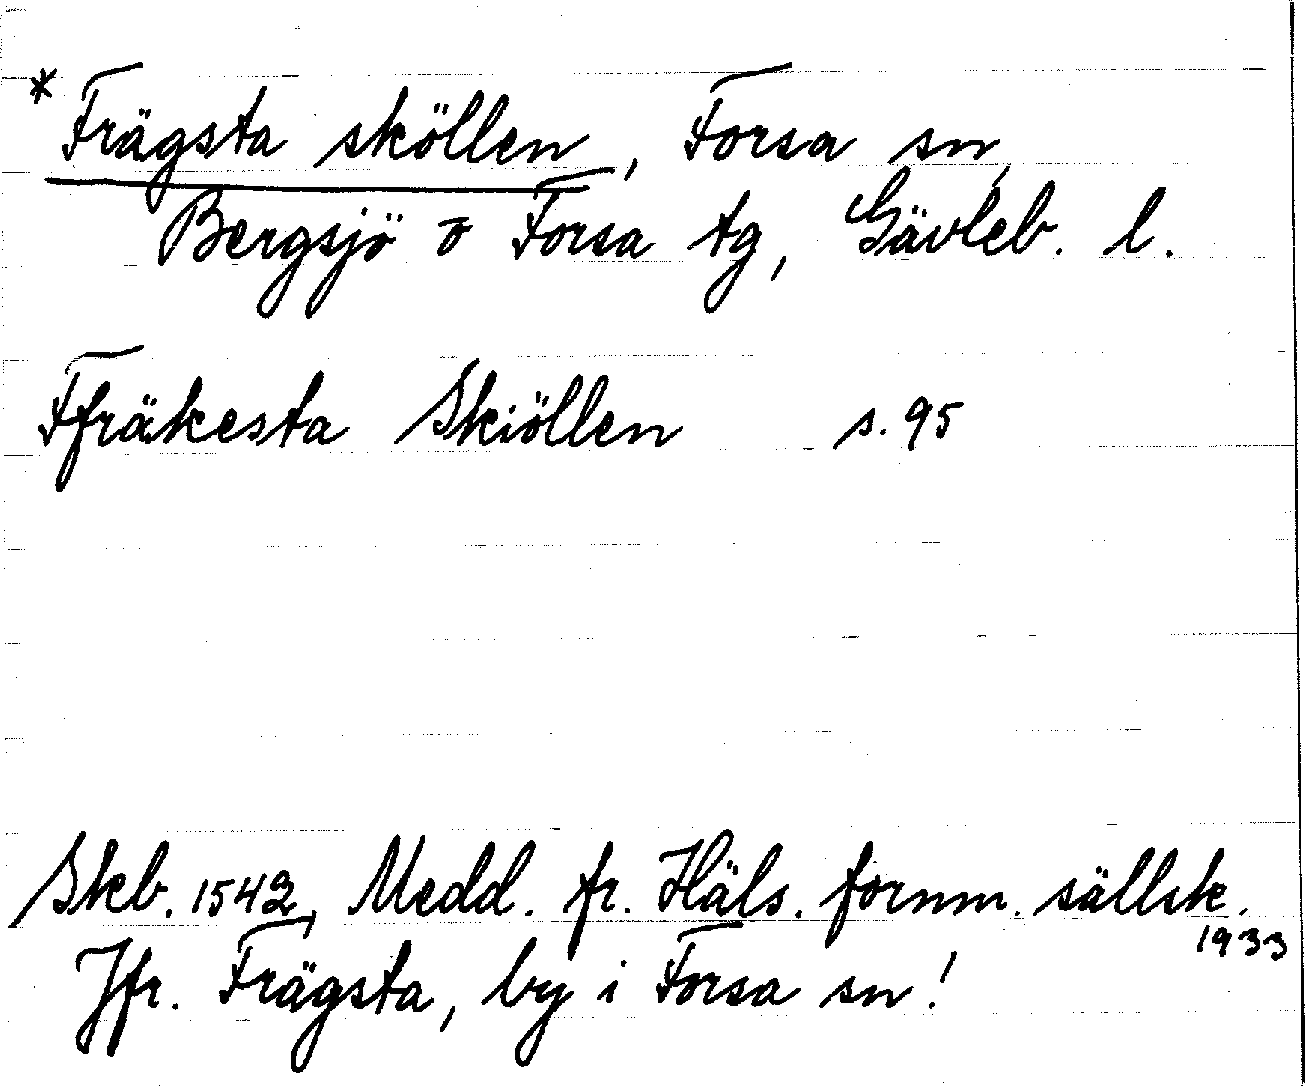 * Frägsta sköllen, Forsa sn,
Bergsjö o Forsa tg, Gävleb. l.
Ffräkesta Skiöllen s. 95
Skb. 1542, Medd. fr. Häls. fornm. sällsk.
1933
Jfr. Frägsta, by i Forsa sn!